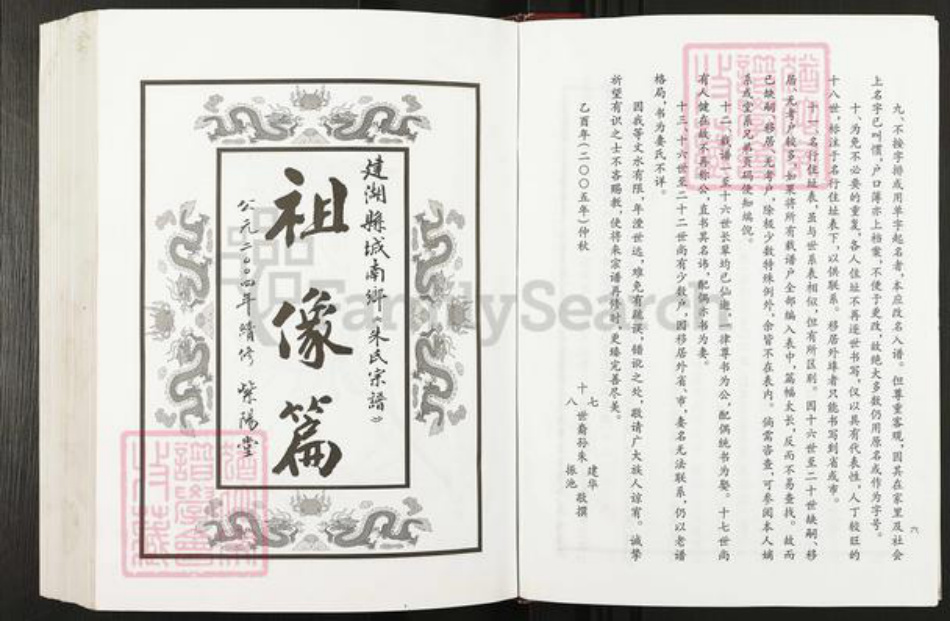 九、不按字排或用单字起名者，本应改名入谱。但尊重客观，因其在家里及社会
上名字已叫惯，户口簿亦上档案，不便于更改，故绝大多数仍用原名或作为字号。
十、为免不必要的重复，各人住址不再逐世书写，仅以具有代表性，人丁较旺的
十八世，标注于名行住址表下，以供联系。移居外埠者只能书写到省或市。
十一、名行住址表，虽与世系表相似，但有所区别。因十六世至二十世缺嗣、移
居、无考户较多，如果将所有载谱户全部编入表中，篇幅太长，反而不易查找。故而
已缺嗣、移居、无考户，除极少数特殊例外，余皆不在表内。倘需咨查，可参阅本人端
系或堂系兄弟页码便知端倪。
十二、载谱一至十六世长辈均已仙逝，一律尊书为公，配偶统书为娶。十七世尚
有人健在故不再称公，直书其名讳，配偶亦书为妻。
十三、十六世至二十二世尚有少数户，因移居外省、市，妻名无法联系，仍以老谱
格局，书为妻氏不详。
因我等文水有限，年湮世远，难免有疏误，错说之处，敬请广大族人谅宥。诚挚
祈望有识之士不吝赐教，使将来宗谱再修时，更臻完善尽美。
十七
十八 世裔孙朱 建华
振池 敬撰
乙酉年（二〇〇五年）仲秋
六
建湖縣城南鄉《朱氏宗譜》
祖像篇
公元二〇〇四年續修 紫陽堂
FamilySearch